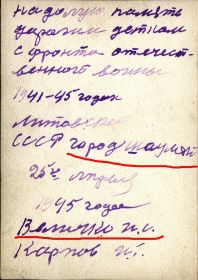 на долгую память
дарагим деткам
с фронта отечест-
венного воины
1941-45 годах
Литовская
СССР город Шаумят
25го Апреля
1945 года
Величко п.с.
Карпов